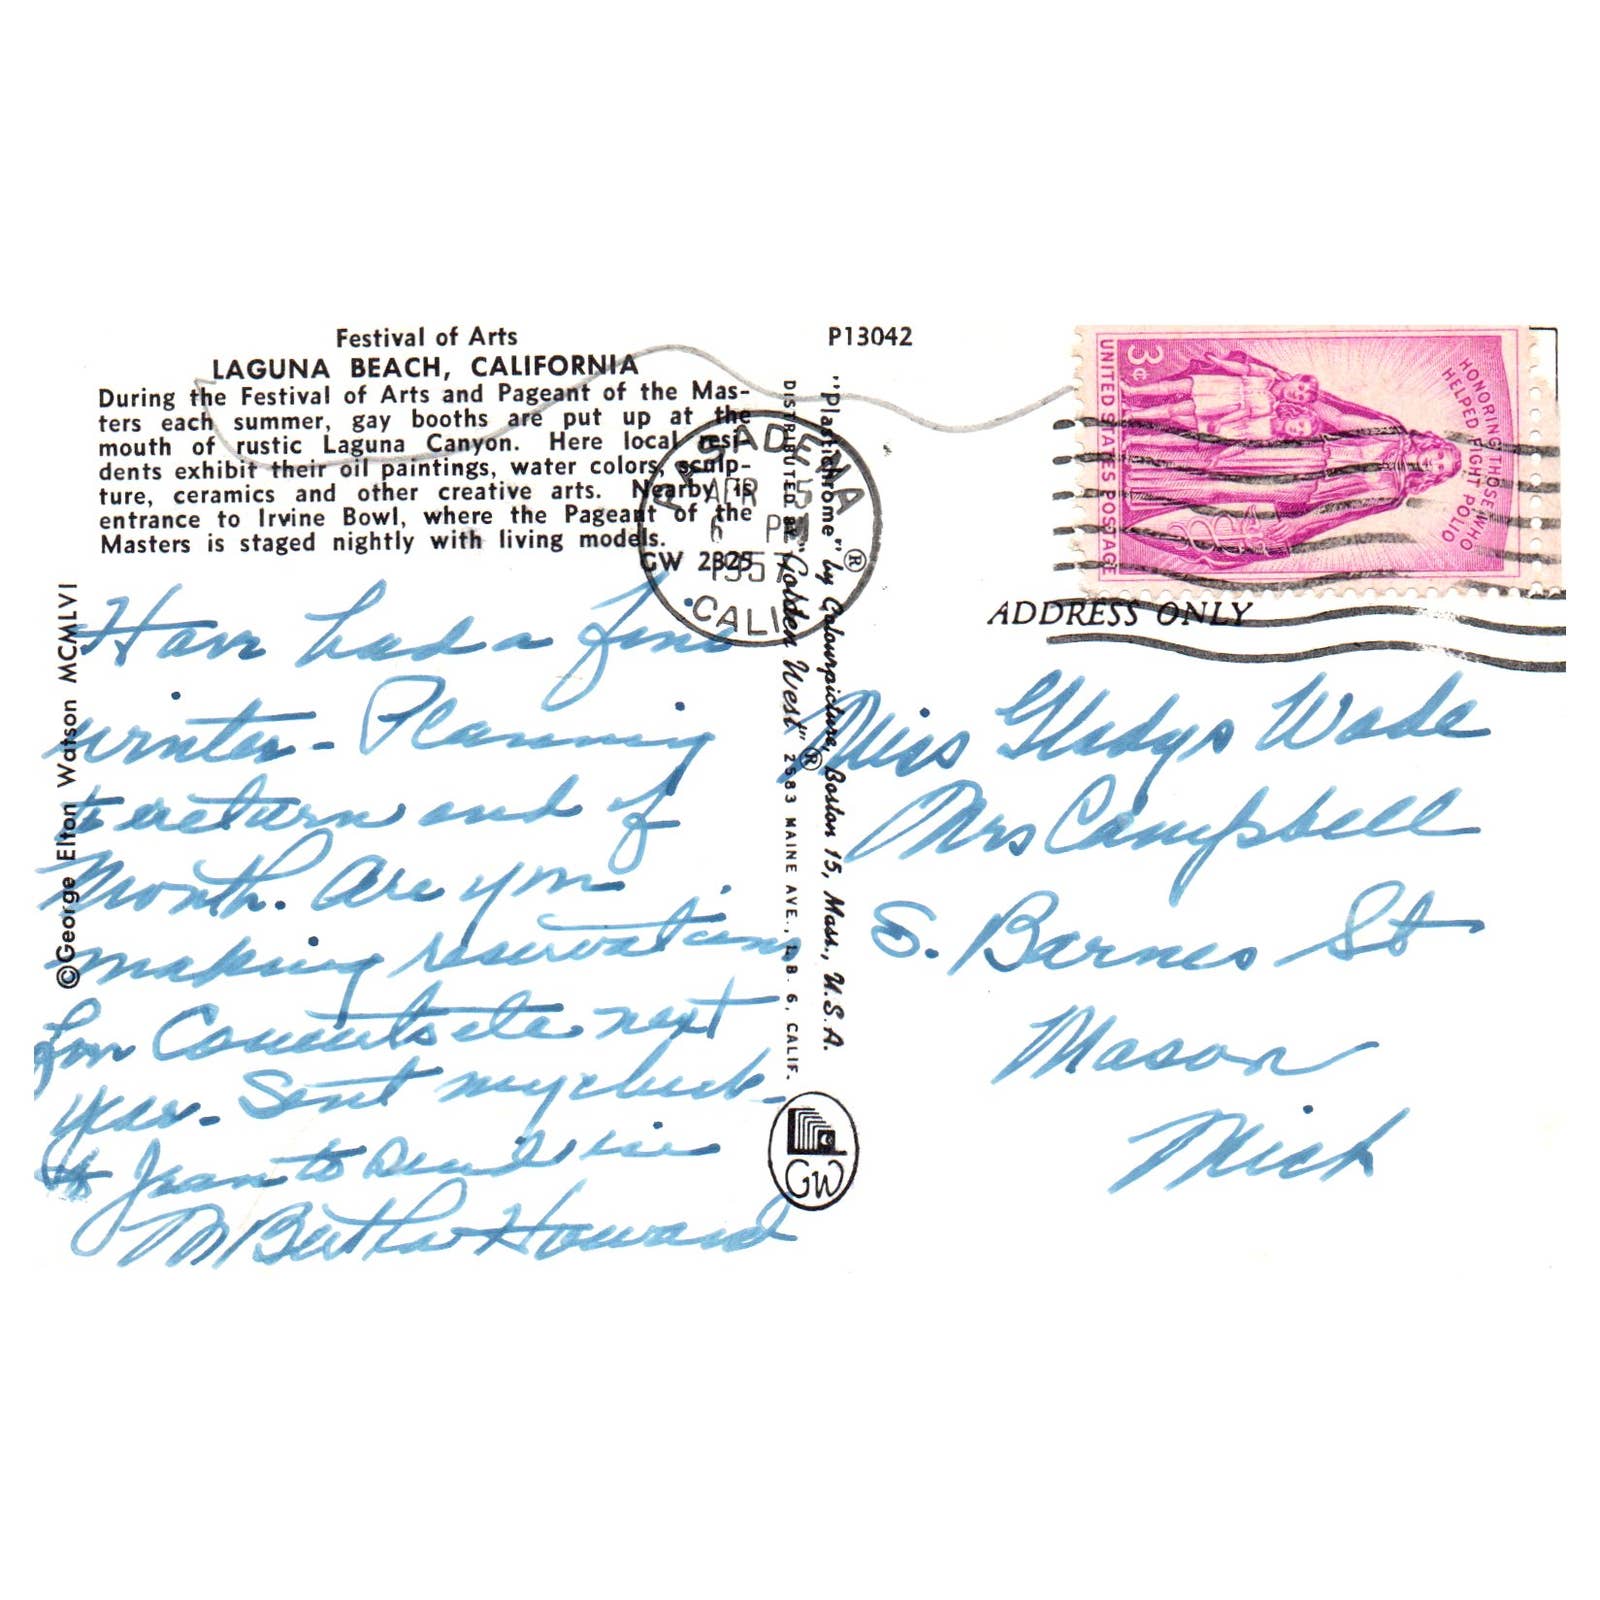 Festival of Arts
LAGUNA BEACH, CALIFORNIA
During the Festival of Arts and Pageant of the Mas-
ters each summer, gay booths are put up at the
mouth of rustic Laguna Canyon. Here local resi-
dents exhibit their oil paintings, water colors, sculp-
ture, ceramics and other creative arts. Nearby is
entrance to Irvine Bowl, where the Pageant of the
Masters is staged nightly with living models.
GW 2325
©George Elton Watson MCMLVI
Have had a fine
winter - Planning
to return end of
Month. Are you
making reservations
for Concerts etc next
year - Sent my check
to Jean to
M Bertha Howard
P13042
PASADENA
APR 5
6 PM
1957
CALIF.
DISTRIBUTED BY "Golden West"® 2583 MAINE AVE., L.B. 6, CALIF.
"Plastichrome"® by Colourpicture, Boston 15, Mass., U.S.A.
GW
HONORING THOSE WHO
HELPED FIGHT POLIO
3¢
UNITED STATES POSTAGE
ADDRESS ONLY
Miss Gladys Wade
Mrs Campbell
S. Barnes St
Mason
Mich